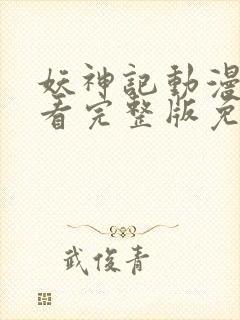 妖神記動漫
看完整版免
武俊青